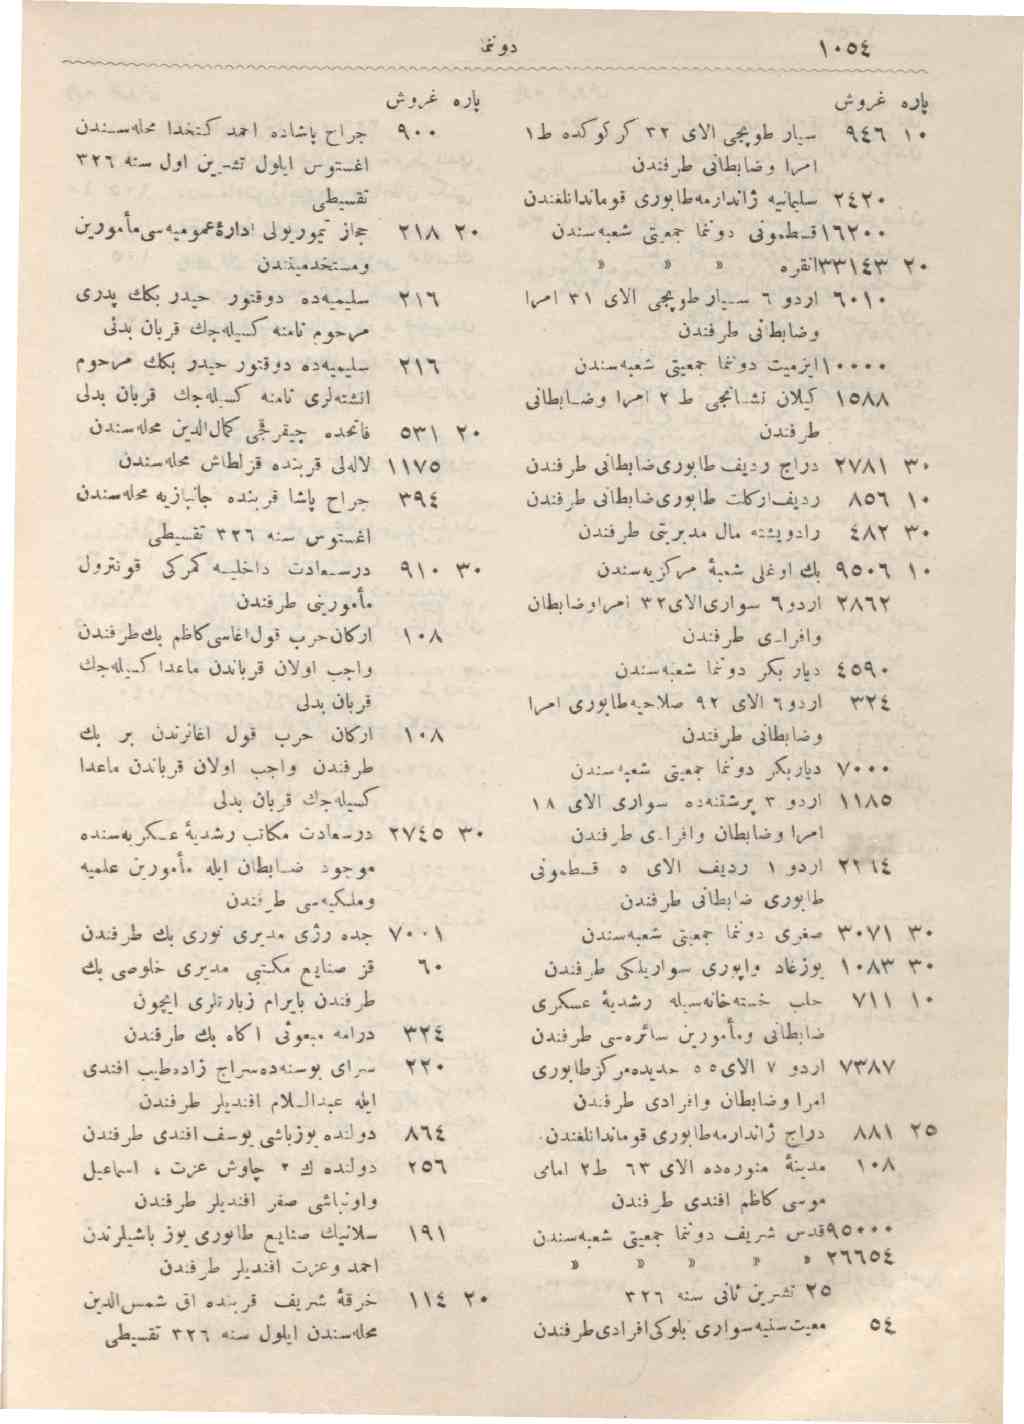 ١٠٥٤
دوننما
پاره غروش
١٠ ٩٤٦ سيار طوپجى الاى ٣٢ كركوكده ط ١
امرا وضابطانى طرفندن
٢٤٢٠ سليمانيه ژاندارمه طابورى قوماندانلغندن
١٦٢٠٠ قسطمونى دوننما جمعيتى شعبه سندن
٢٠ ٣٣١٤٣ انقره » » »
٦٠١٠ اردو ٦ سيار طوپجى الاى ٣١ امرا
وضابطانى طرفندن
١٠٠٠٠ ايزميت دوننما جمعيتى شعبه سندن
١٥٨٨ كيلان نشانجى ط ٢ امرا وضابطانى
طرفندن
٣٠ ٢٧٨١ دراج رديف طابورى ضابطانى طرفندن
١٠ ٨٥٦ رديف اركلت طابورى ضابطانى طرفندن
٣٠ ٤٨٢ رادويشته مال مديريتى طرفندن
١٠ ٩٥٠٦ بك اوغلى شعبۀ مركزيه سندن
٢٨٦٢ اردو ٦ سوارى الاى ٣٢ امرا وضابطان
وافرادى طرفندن
٤٥٩٠ ديار بكر دوننما شعبه سندن
٣٢٤ اردو ٦ الاى ٩٢ صلاحيه طابورى امرا
وضابطانى طرفندن
٧٠٠٠ ديار بكر دوننما جمعيتى شعبه سندن
١١٨٥ اردو ٣ پرشتنه ده سوارى الاى ١٨
امرا وضابطان وافرادى طرفندن
٢٢٦٤ اردو ١ رديف الاى ٥ قسطمونى
طابورى ضابطانى طرفندن
٣٠ ٣٠٧١ صغرى دوننما جمعيتى شعبه سندن
٣٠ ١٠٨٣ يوزغاد واپورى سواريلكى طرفندن
١٠ ٧١١ حلب خسته خانه سيله رشديۀ عسكرى
ضابطانى ومأمورين سائره سى طرفندن
٧٣٨٧ اردو ٧ الاى ٥٥ حديده مركز طابورى
امرا وضابطان وافرادى طرفندن
٢٥ ٨٨١ دراج ژاندارمه طابورى قوماندانلغندن
١٠٨ مدينۀ منوره ده الاى ٦٣ ط ٢ امامى
موسى كاظم افندى طرفندن
٩٥٠٠٠ قدس شريف دوننما جمعيتى شعبه سندن
٢٦٦٥٤ » » » » »
٢٥ تشرين ثانى سنه ٣٢٦
٥٤ معيت سنيه سوارى بلوكى افرادى طرفندن
پاره غروش
٩٠٠ جراح پاشاده احمد كتخدا محله سندن
اغستوس ايلول تشرين اول سنه ٣٢٦
تقسيطى
٢٠ ٢١٨ حجاز تيموريولى ادارۀ عموميه سى مأمورين
ومستخدميندن
٢١٦ سليميه ده دوقتور حيدر بكك پدرى
مرحوم نامنه كسيله جك قربان بدلى
٢١٦ سليميه ده دوقتور حيدر بكك مرحوم
انشته لرى نامنه كسيله جك قربان بدلى
٢٠ ٥٣١ فاتحده چيقرقجى كمال الدين محله سندن
١١٧٥ لاله لى قربنده قزلطاش محله سندن
٣٩٤ جراح پاشا قربنده جانبازيه محله سندن
اغستوس سنه ٣٢٦ تقسيطى
٣٠ ٩١٠ درسعادت داخليه كمركى قونترول
مأمورينى طرفندن
١٠٨ اركان حرب قول اغاسى كاظم بك طرفندن
واجب اولان قرباندن ماعدا كسيله جك
قربان بدلى
١٠٨ اركان حرب قول اغالرندن بر بك
طرفندن واجب اولان قرباندن ماعدا
كسيله جك قربان بدلى
٣٠ ٢٧٤٥ درسعادت مكاتب رشديۀ عسكريه سنده
موجود ضابطان ايله مأمورين علميه
وملكيه سى طرفندن
٧٠٠١ جده رژى مديرى نورى بك طرفندن
٦٠ قز صنايع مكتبى مديرى خلوصى بك
طرفندن بايرام زيارتلرى ايچون
٣٢٤ درامه مبعوثى اكاه بك طرفندن
٢٢٠ سراى بوسنه ده سراج زاده طيب افندى
ايله عبدالسلام افنديلر طرفندن
٨٦٤ دولنده يوزباشى يوسف افندى طرفندن
٢٥٦ دولنده ك ٢ چاوش عزت ، اسماعيل
واونباشى صفر افنديلر طرفندن
١٩١ سلانيك صنايع طابورى يوز باشيلرندن
احمد وعزت افنديلر طرفندن
٢٠ ١١٤ خرقۀ شريف قربنده اق شمس الدين
محله سندن ايلول سنه ٣٢٦ تقسيطى